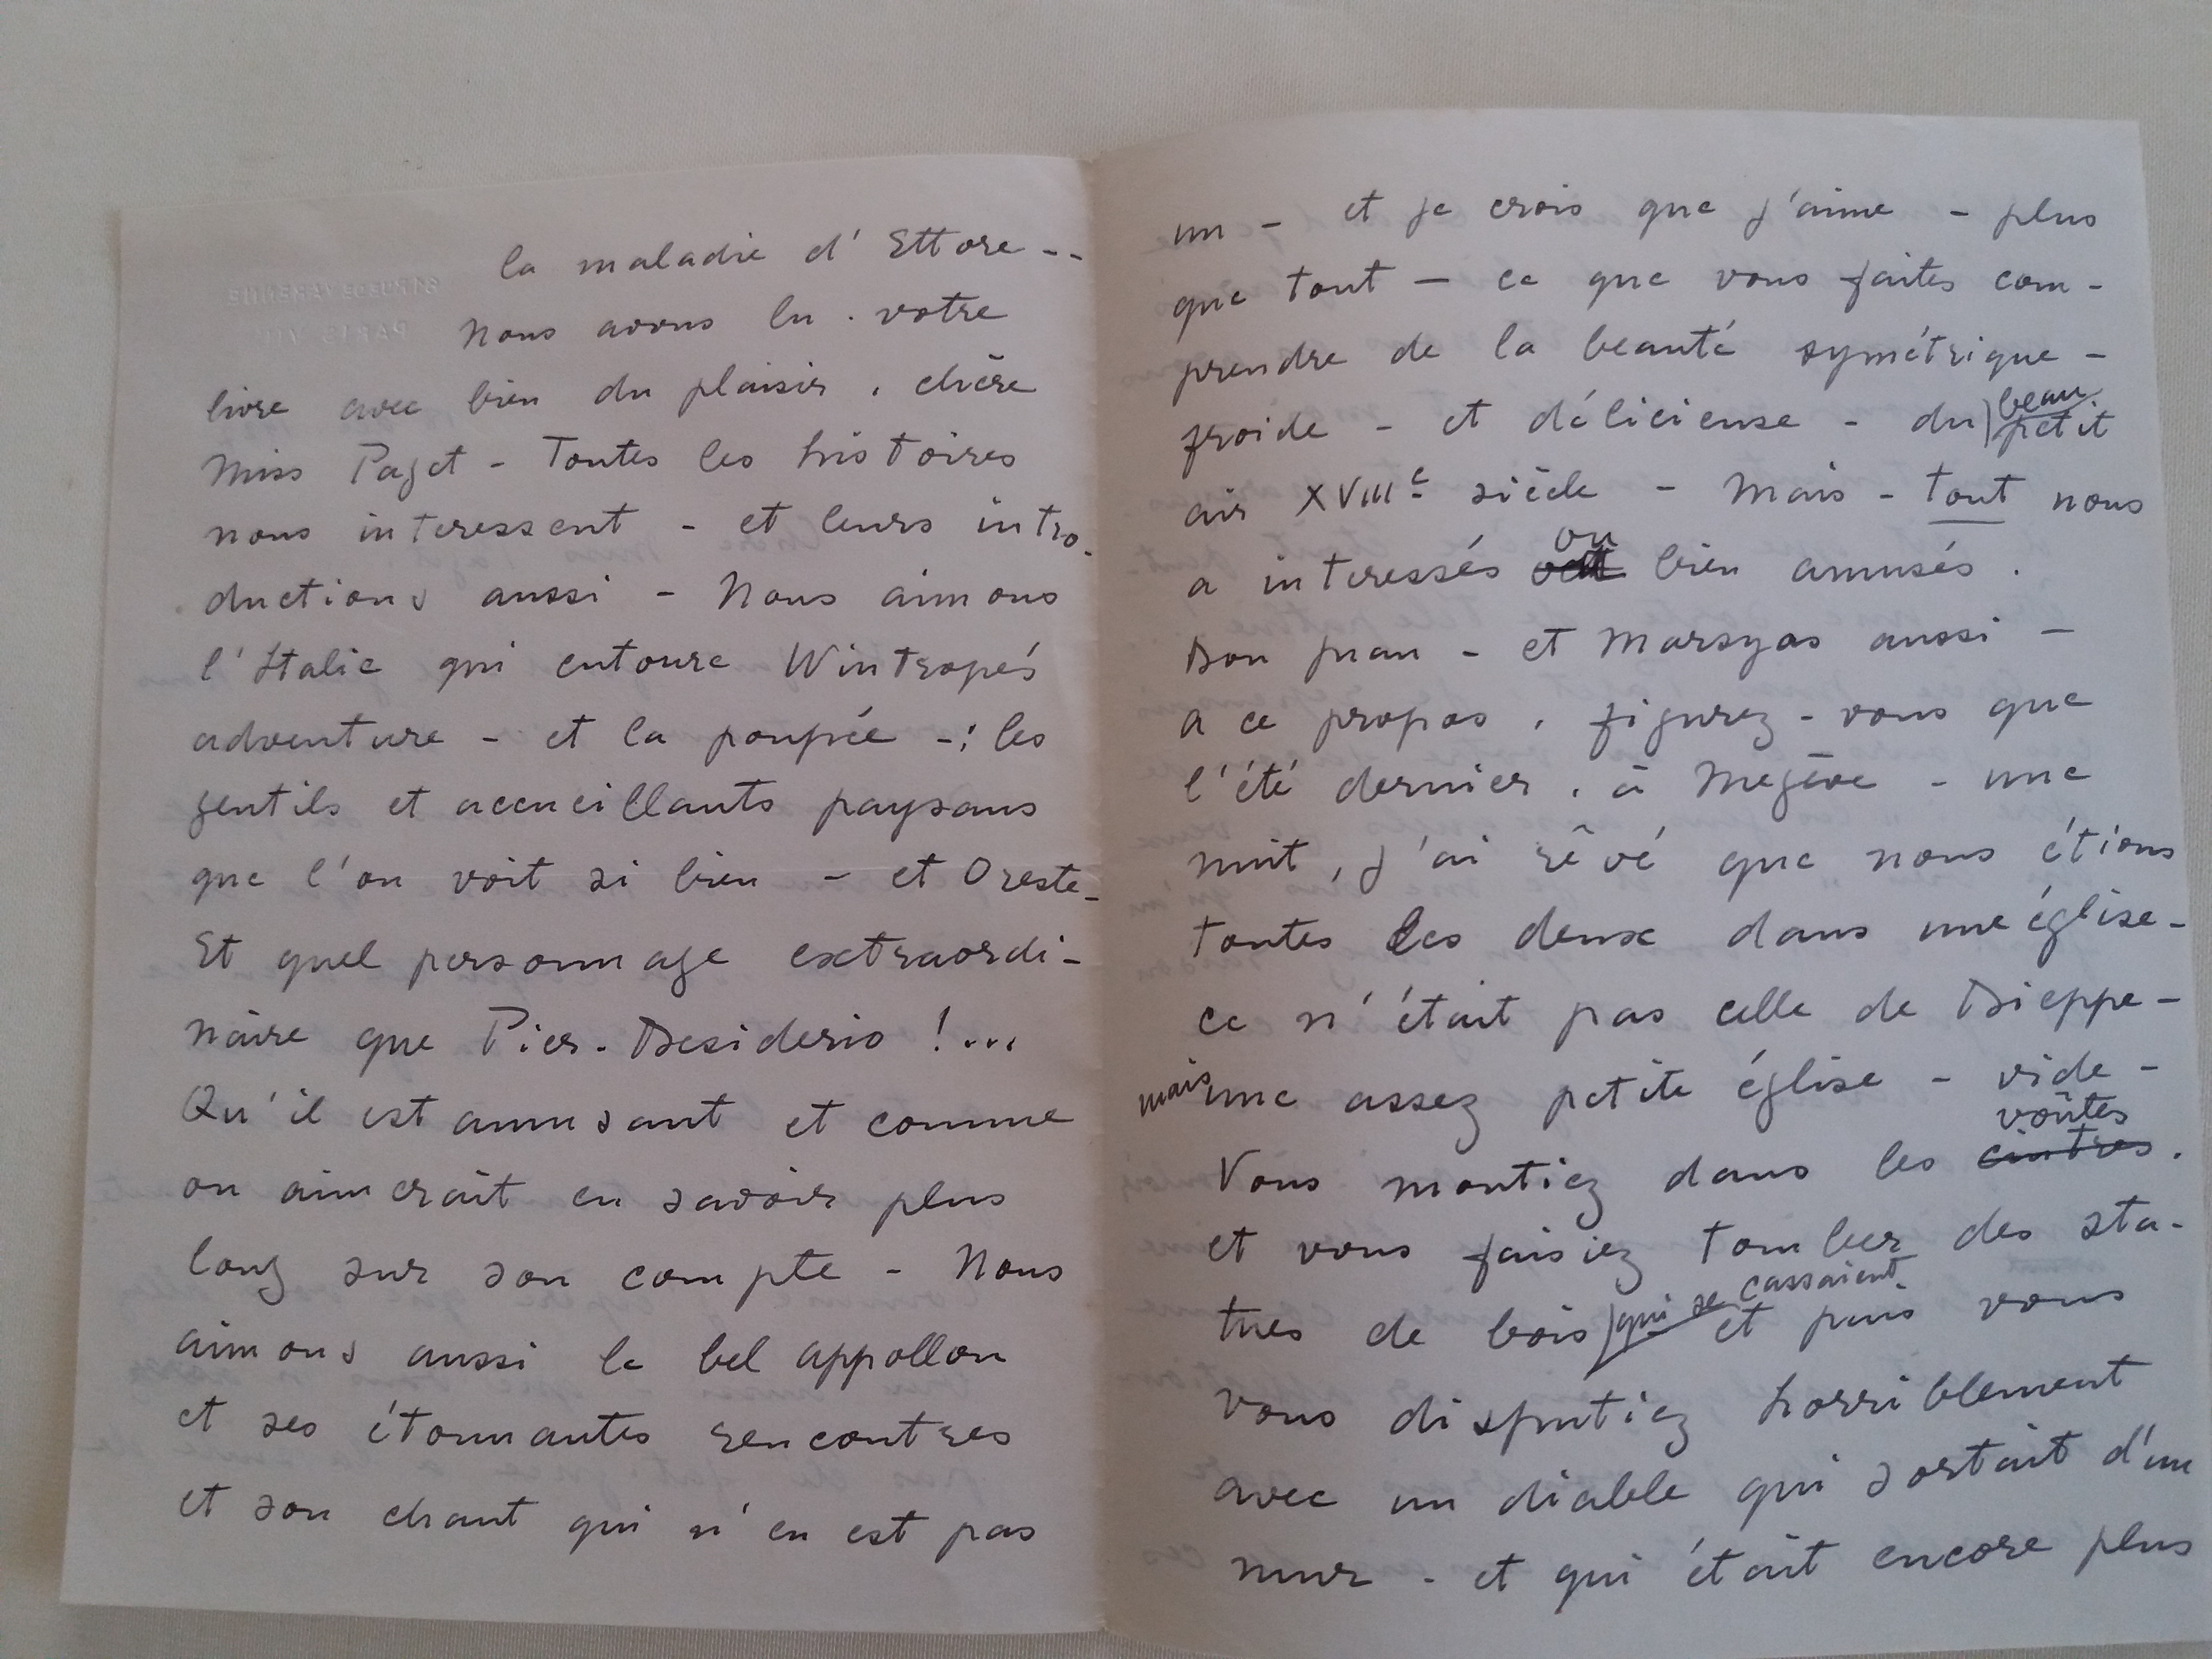 la maladie d'Ettore --
Nous avons lu votre
livre avec bien du plaisir, chère
Miss Paget - Toutes les histoires
nous interessent - et leurs intro-
ductions aussi - Nous aimons
l'Italie qui entoure Wintropés
adventure - et la poupée -; les
gentils et accueillants paysans
que l'on voit si bien - et Oreste -
Et quel personnage extraordi-
naire que Pier-Desiderio !...
Qu'il est amusant et comme
on aimerait en savoir plus
long sur son compte - Nous
aimons aussi le bel appollon
et ses étonnantes rencontres
et son chant qui n'en est pas
un - et je crois que j'aime - plus
que tout - ce que vous faites com-
prendre de la beauté symétrique -
froide - et délicieuse - du beau petit
air XVIIIe siècle - Mais - tout nous
a interessés ou bien amusés.
Don Juan - et Marsyas aussi -
a ce propos, figurez-vous que
l'été dernier, à Megève - une
nuit, j'ai rêvé que nous étions
toutes les deux dans une église -
ce n'était pas celle de Dieppe -
mais une assez petite église - vide -
voûtes
Vous montiez dans les cintres.
et vous faisiez tomber des sta-
tues de bois qui se cassaient et puis vous
vous disputiez horriblement
avec un diable qui sortait d'un
mur - et qui était encore plus